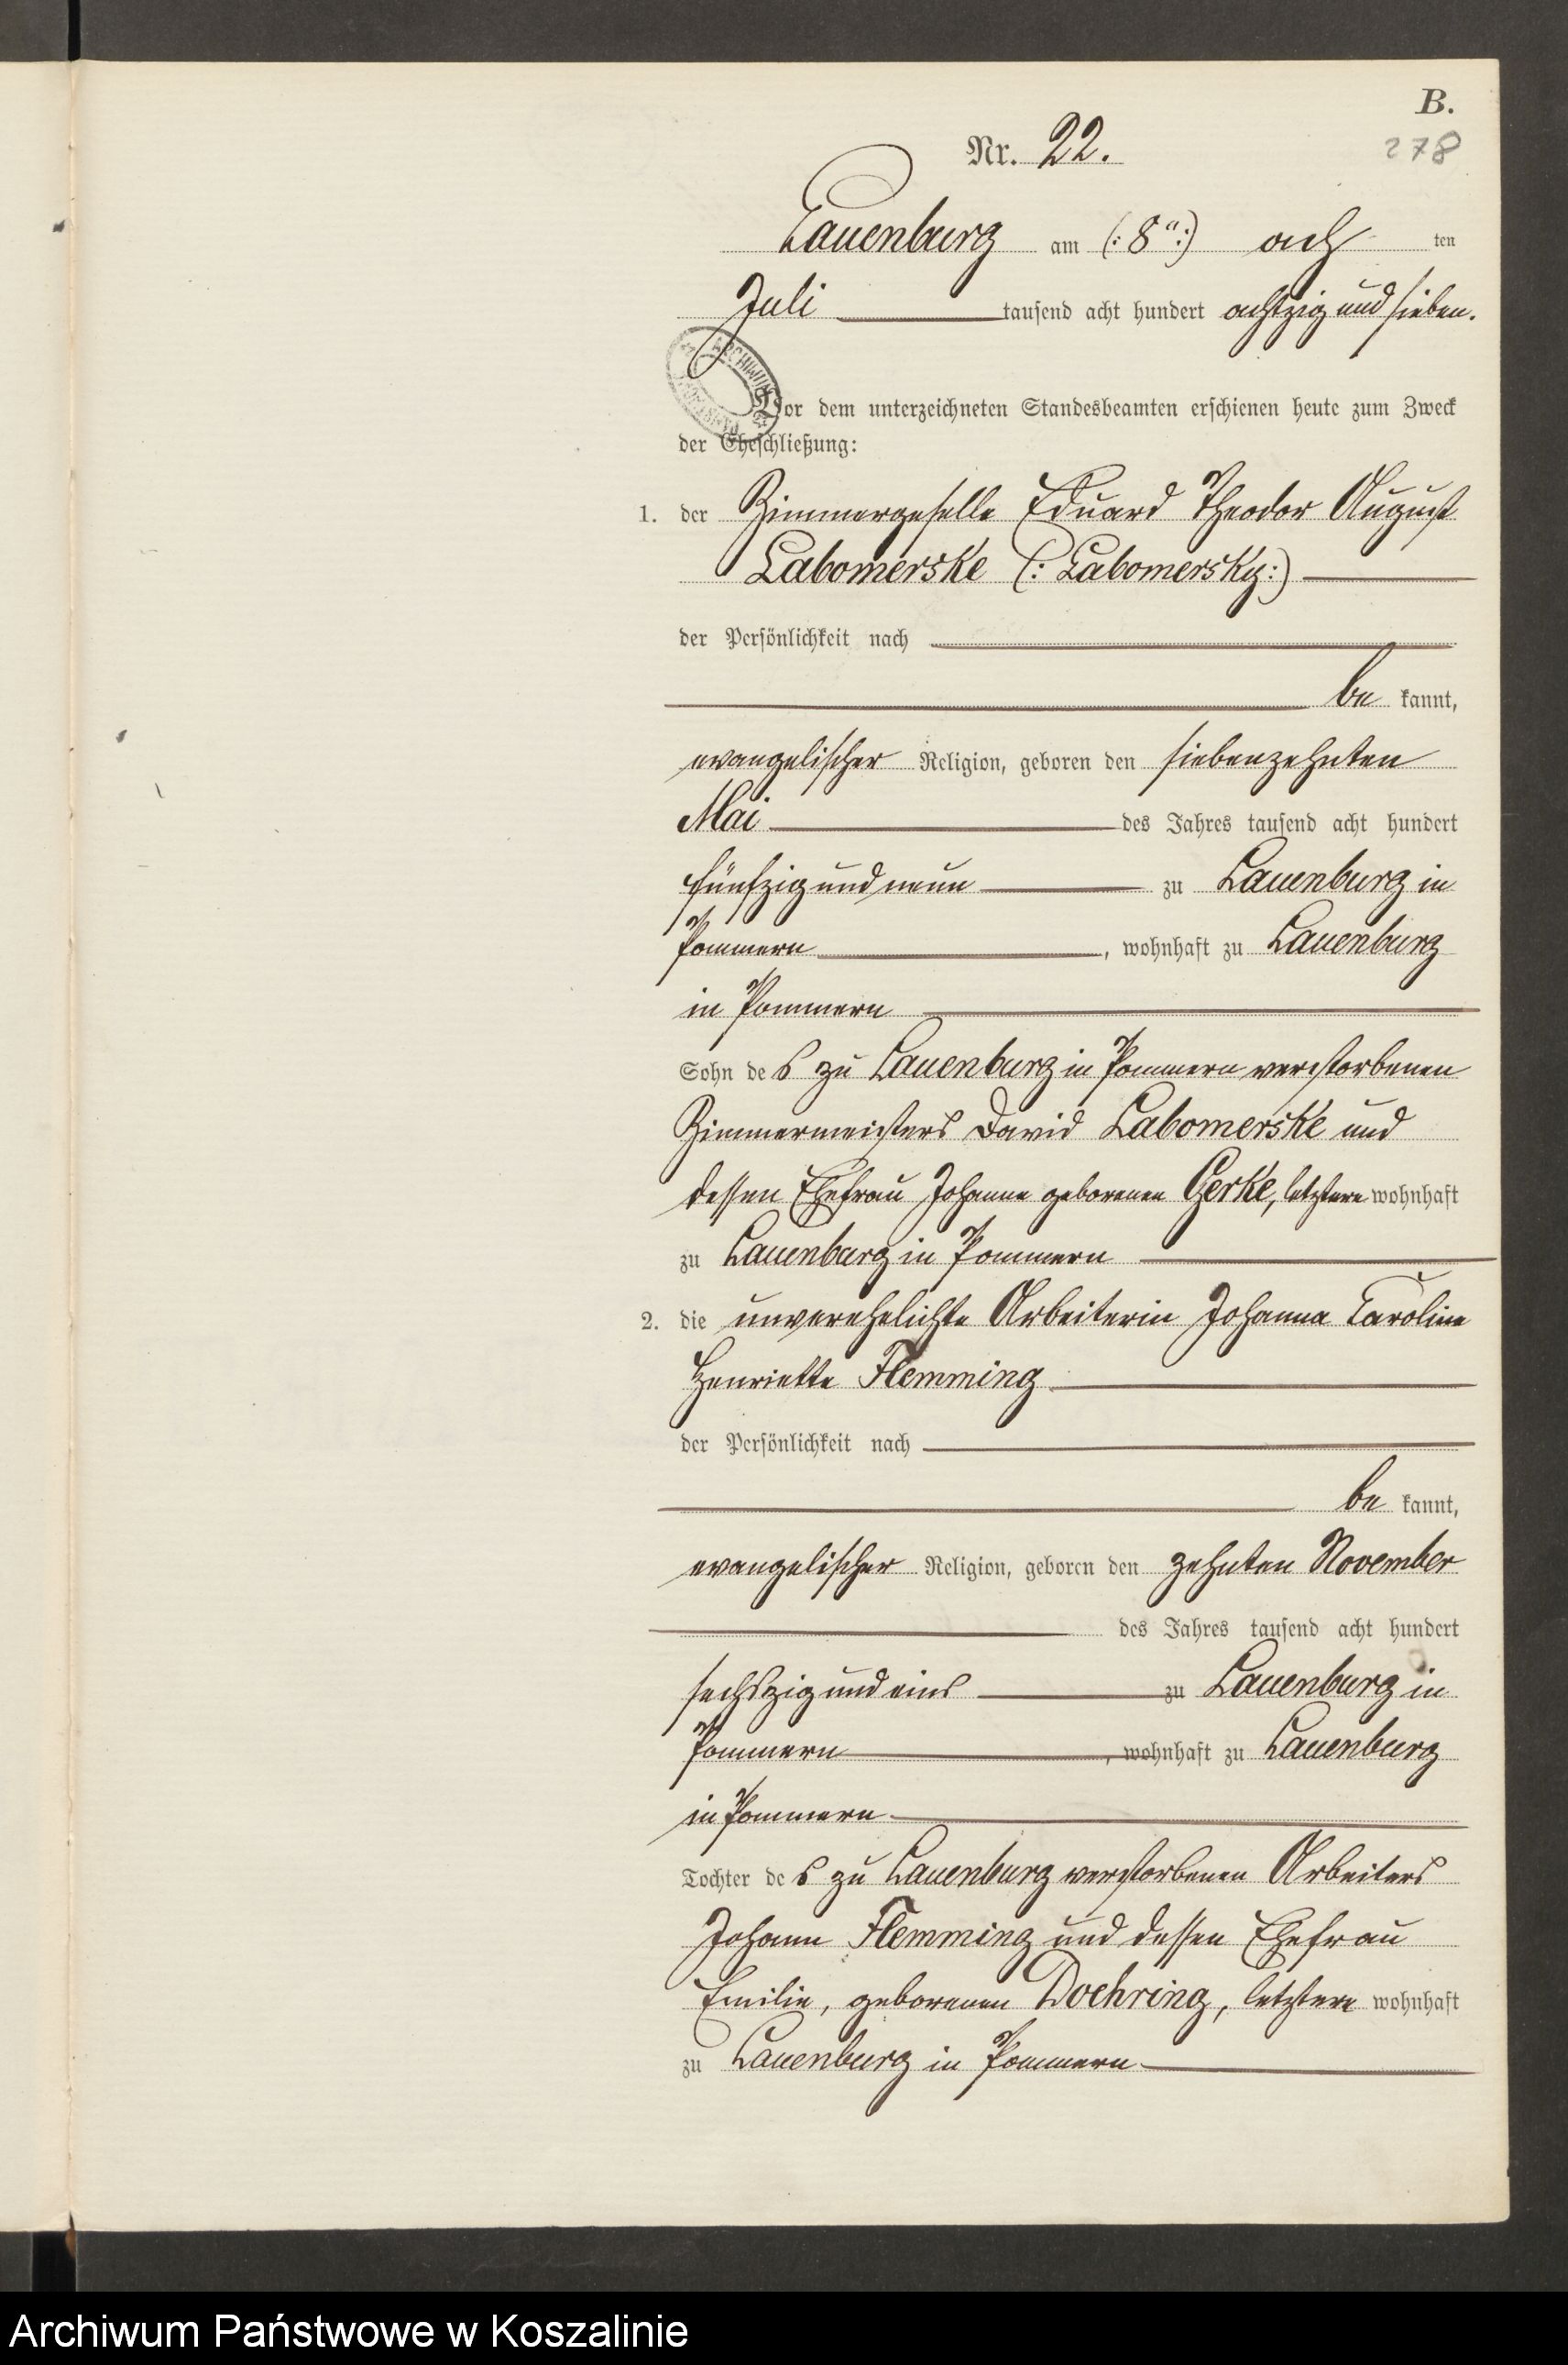 B.
Nr. 22.
278
Lauenburg am (: 8ten :) ach ten
Juli tausend acht hundert achtzig und sieben.
ARCHIWUM
Vor dem unterzeichneten Standesbeamten erschienen heute zum Zweck
der Eheschließung:
1. der Zimmergeselle Eduard Theodor August
Labomerske (: Labomersky :)
der Persönlichkeit nach
be kannt,
evangelischer Religion, geboren den siebenzehnten
Mai des Jahres tausend acht hundert
fünfzig und neun zu Lauenburg in
Pommern, wohnhaft zu Lauenburg
in Pommern
Sohn des zu Lauenburg in Pommern verstorbenen
Zimmermeisters David Labomerske und
dessen Ehefrau Johanne geborenen Gerke, letztere wohnhaft
zu Lauenburg in Pommern
2. die unverehelichte Arbeiterin Johanna Caroline
Henriette Flemming
der Persönlichkeit nach
be kannt,
evangelischer Religion, geboren den zehnten November
des Jahres tausend acht hundert
sechszig und eins zu Lauenburg in
Pommern, wohnhaft zu Lauenburg
in Pommern
Tochter des zu Lauenburg verstorbenen Arbeiters
Johann Flemming und dessen Ehefrau
Emilie, geborenen Doehring, letztere wohnhaft
zu Lauenburg in Pommern
Archiwum Państwowe w Koszalinie